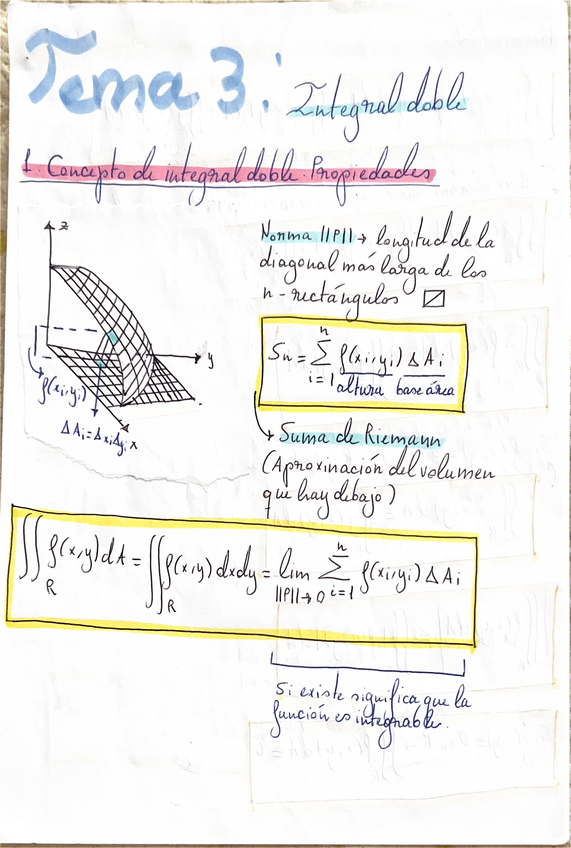 Tema 3: Integral doble
1. Concepto de integral doble. Propiedades
z
y
x
f(xi,yi)
ΔAi=ΔxiΔyi
Norma ||P|| → longitud de la
diagonal más larga de los
n-rectángulos
Sn = Σ_{i=1}^{n} f(xi,yi) ΔAi
altura base área
Suma de Riemann
(Aproxinación del volumen
que hay debajo)
∬_R f(x,y)dA = ∬_R f(x,y)dxdy = lim_{||P||→0} Σ_{i=1}^{n} f(xi,yi) ΔAi
Si existe significa que la
función es integrable.